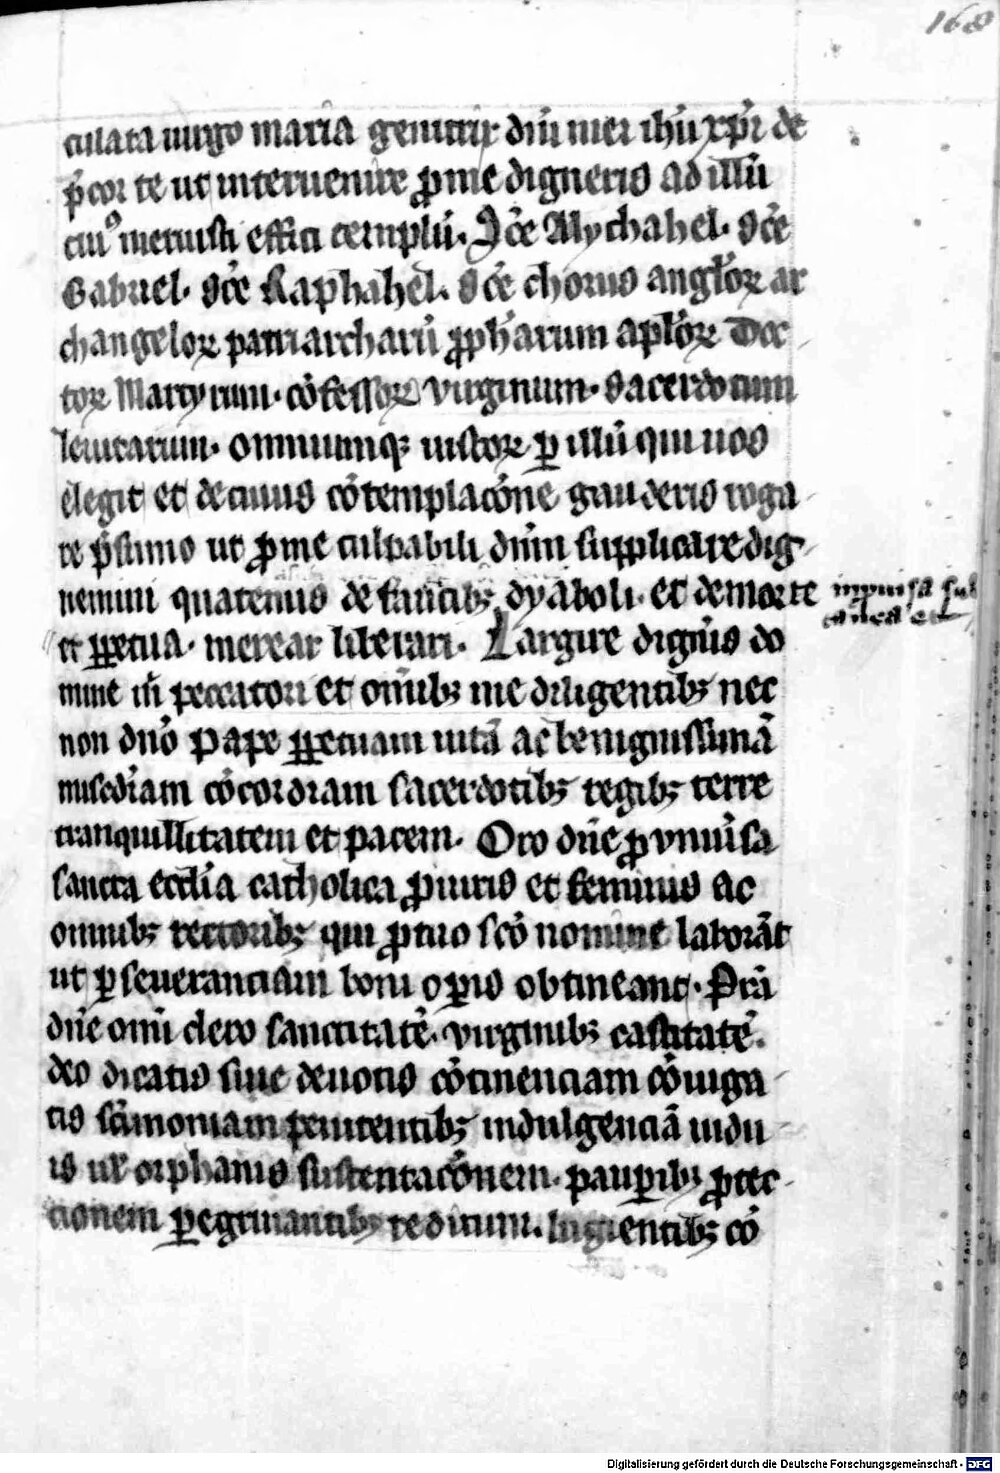 168
culata uirgo maria genitrix dn̄i mei ihū xp̄i de
p̄cor te ut interuenire ꝓ me digneris ad illū
cuiꝰ meruisti effici templū. Sc̄e Mychahel. sc̄e
Gabriel. sc̄e Raphahel. sc̄e chorus angl̄oꝝ ar
changeloꝝ patriarcharū ꝓph̄arum apl̄oꝝ Doc
toꝝ Martyrum. cōfessoꝝ virginum. sacerdotum
leuitarum. omniumqꝫ iustoꝝ ꝑ illū qui uos
elegit et de cuius cōtemplacōne gauderis roga
re p̄sumo ut ꝓ me culpabili dn̄m supplicare dig
nemini quatenus de faucibꝫ dyaboli. et de morte
ꝑpetua. merear liberari. Largire dign̄s do
mine m̄ peccatori et om̄ibꝫ me diligentibꝫ nec
non dn̄o Pape ꝑpetuam uitā ac benignissimā
mis̄cdiam cōcordiam sacerdotibꝫ regibꝫ terre
tranquillitatem et pacem. Oro dn̄e ꝓ vniuīsa
sancta eccl̄ia catholica ꝓ uiris et feminis ac
omnibꝫ rectoribꝫ qui ꝓ tuo sc̄o nomine laborāt
ut ꝑseueranciam boni oꝑis obtineant. Pr̄a
dn̄e om̄i clero sanctitatē. virginibꝫ castitatē.
deo dicatis siue deuotis cōtinenciam cōiuga
tis sc̄imoniam penitentibꝫ indulgenciā uidu
is ul̄ orphanis sustentacōnem. pauꝑibꝫ ꝓtec
tionem ꝑegrinantibꝫ reditum. lugientibꝫ cō
Digitalisierung gefördert durch die Deutsche Forschungsgemeinschaft - DFG